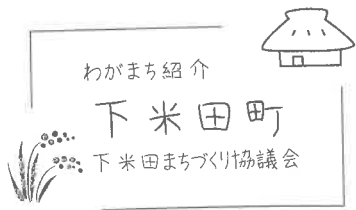 わがまち紹介
下米田町
下米田まちづくり協議会